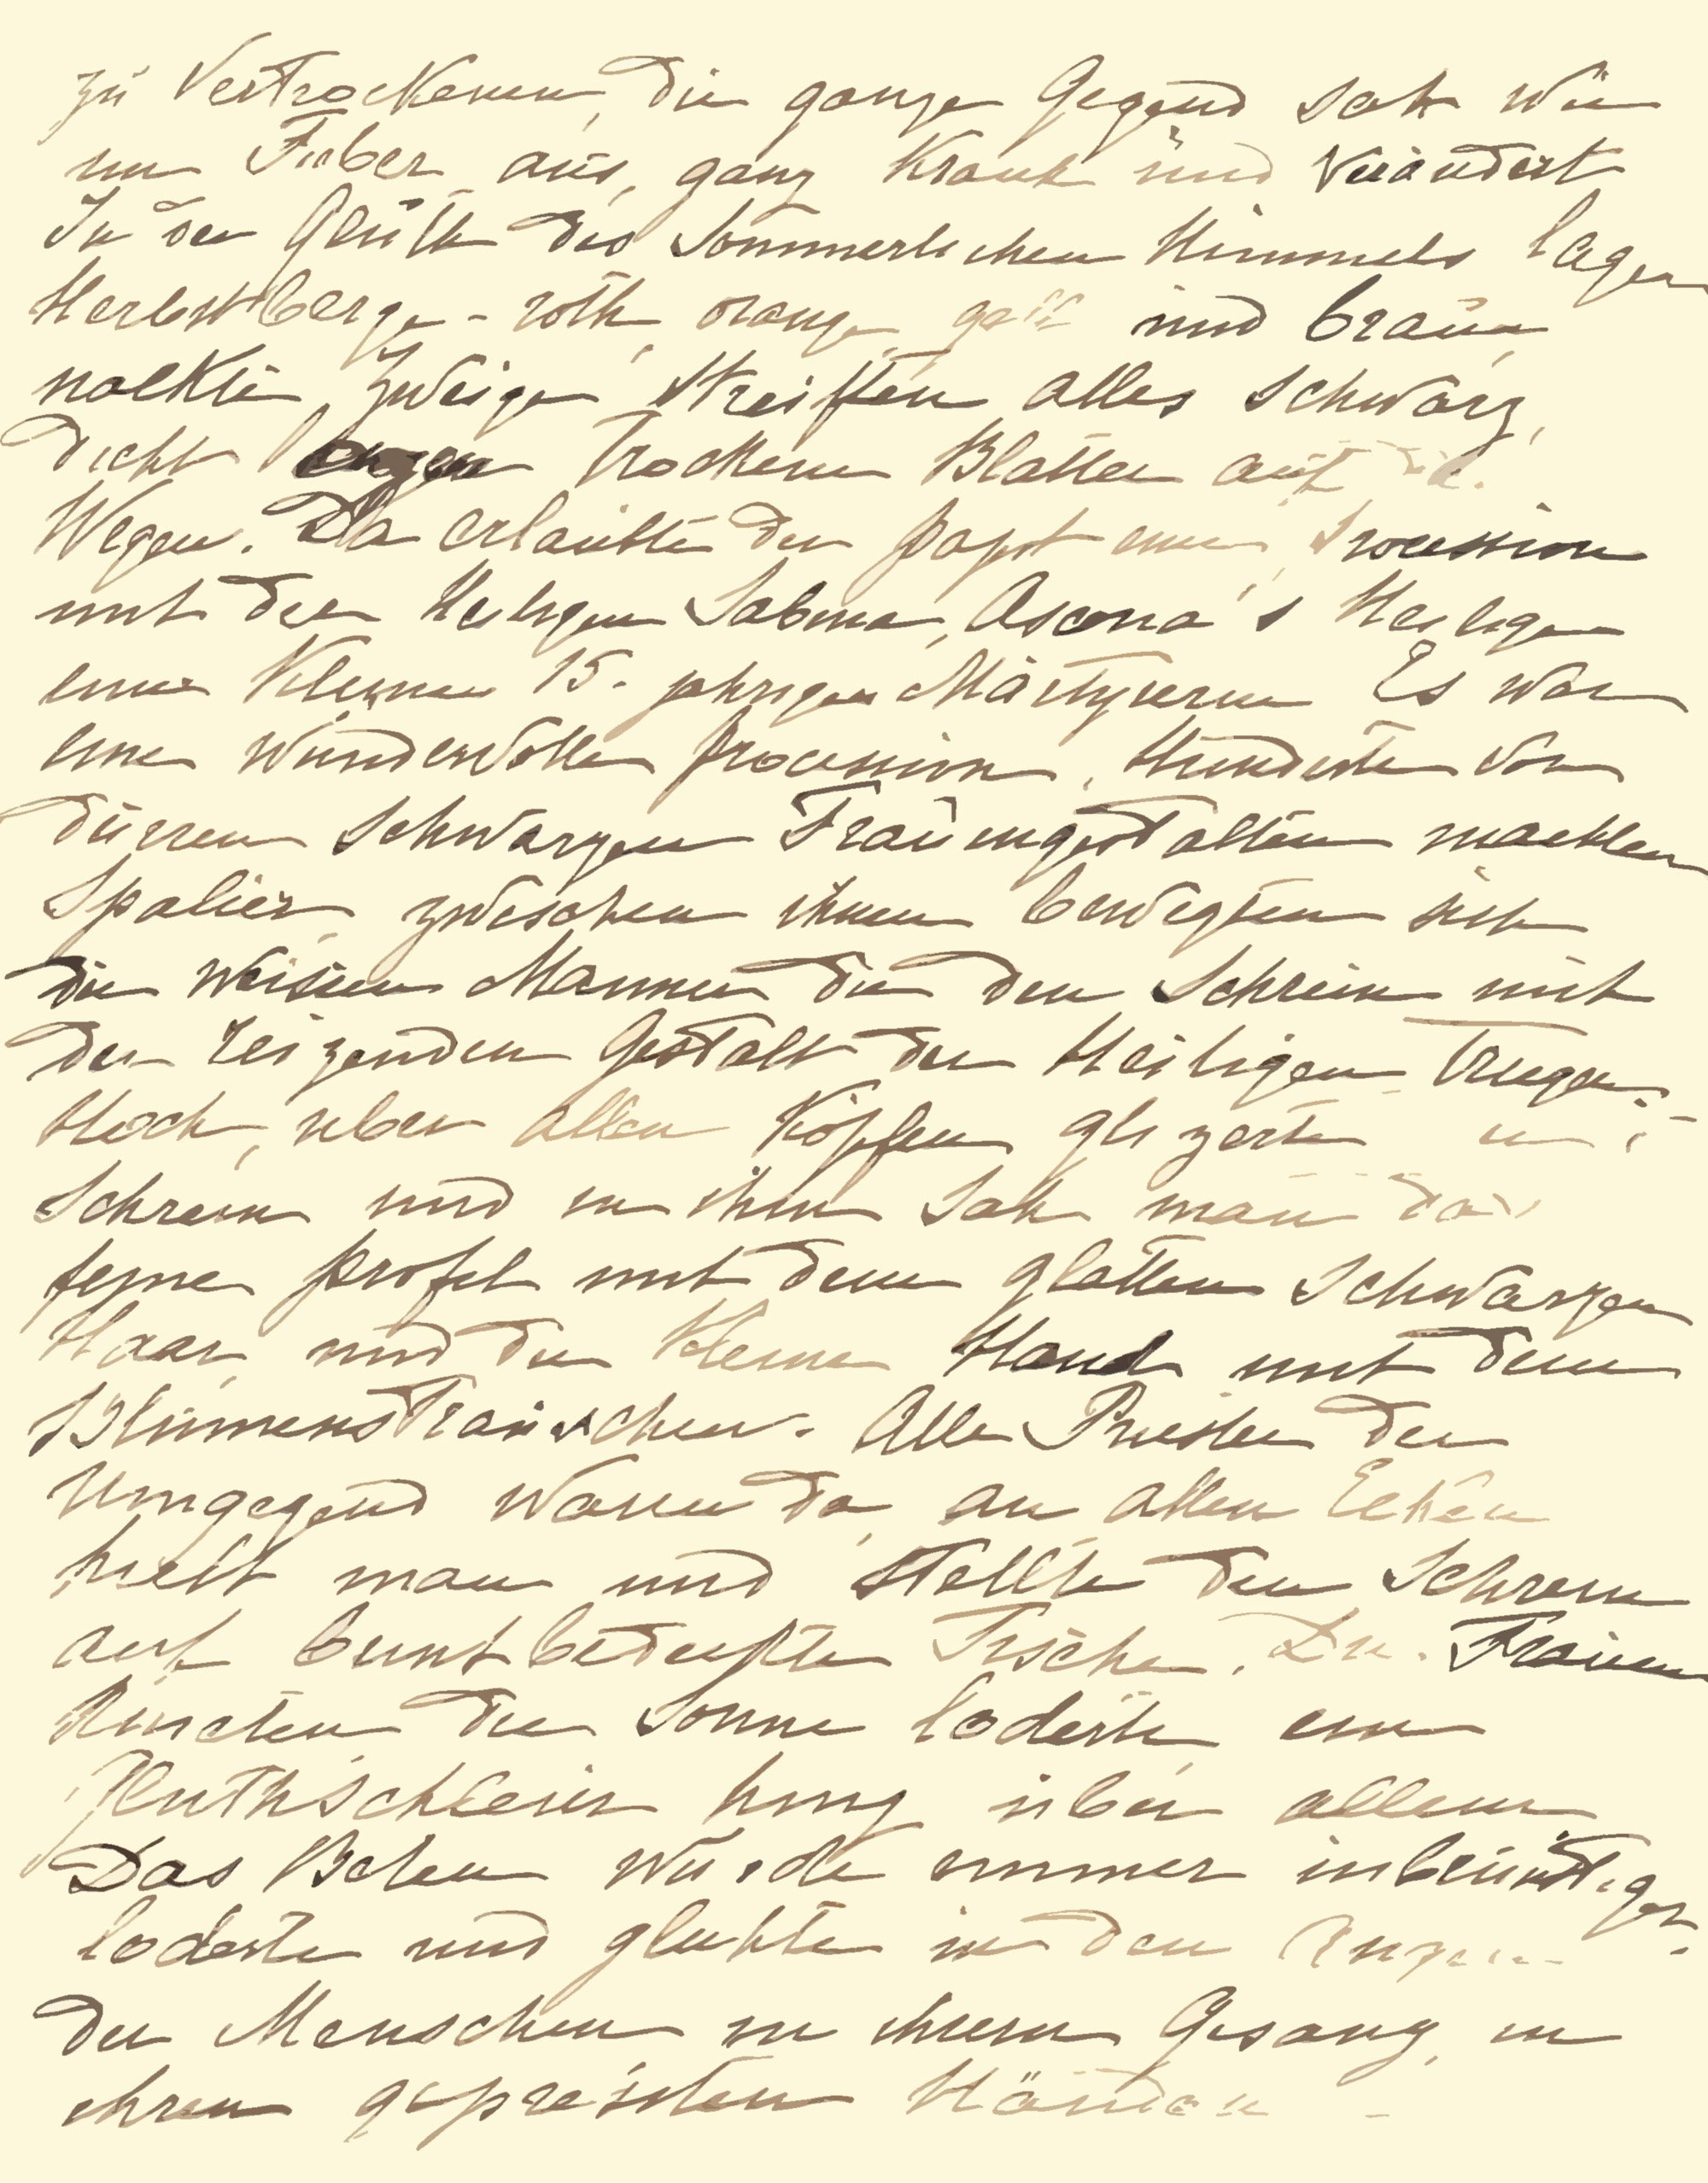 zu vertrockenen, die ganze Gegend sah wie
im Fieber aus, ganz krank und verändert
In der Gluth des sommerlichen Himmels lagen
Herbstberge - roth, orange, gelb und braun,
nackte Zweige streiften alles schwarz,
dicht lagen trockene Blätter auf die
Wegen. Da erlaubte der Papst eine Procession
mit der Heiligen Sabina, Ascona's Heilige
eine kleine 15. jahrigen Märtyrerin Es war
eine wundervolle Procession. Hunderte von
dürren schwarzen Frauengestalten machten
Spalier, zwischen ihnen bewegten sich
die weissen Männer die den Schrein mit
der reizenden Gestalt der Heiligen trugen.
Hoch, über allen Köpfen glizerte
Schrein und in ihm sah man das
feine Profil mit dem glatten schwarzen
Haar, und die kleine Hand mit dem
Blumensträusschen. Alle Priester der
Umgegend waren da, an allen Ecken
hielt man und stellte den Schrein
auf bunt bedeckte Tische. Die Frauen
knieten die Sonne loderte, ein
Gluthschleier hing über allem
Das Beten wurde immer inbrünstiger,
loderte und glühte in den Augen
der Menschen in ihrem Gesang, in
ihren gepressten Händen -